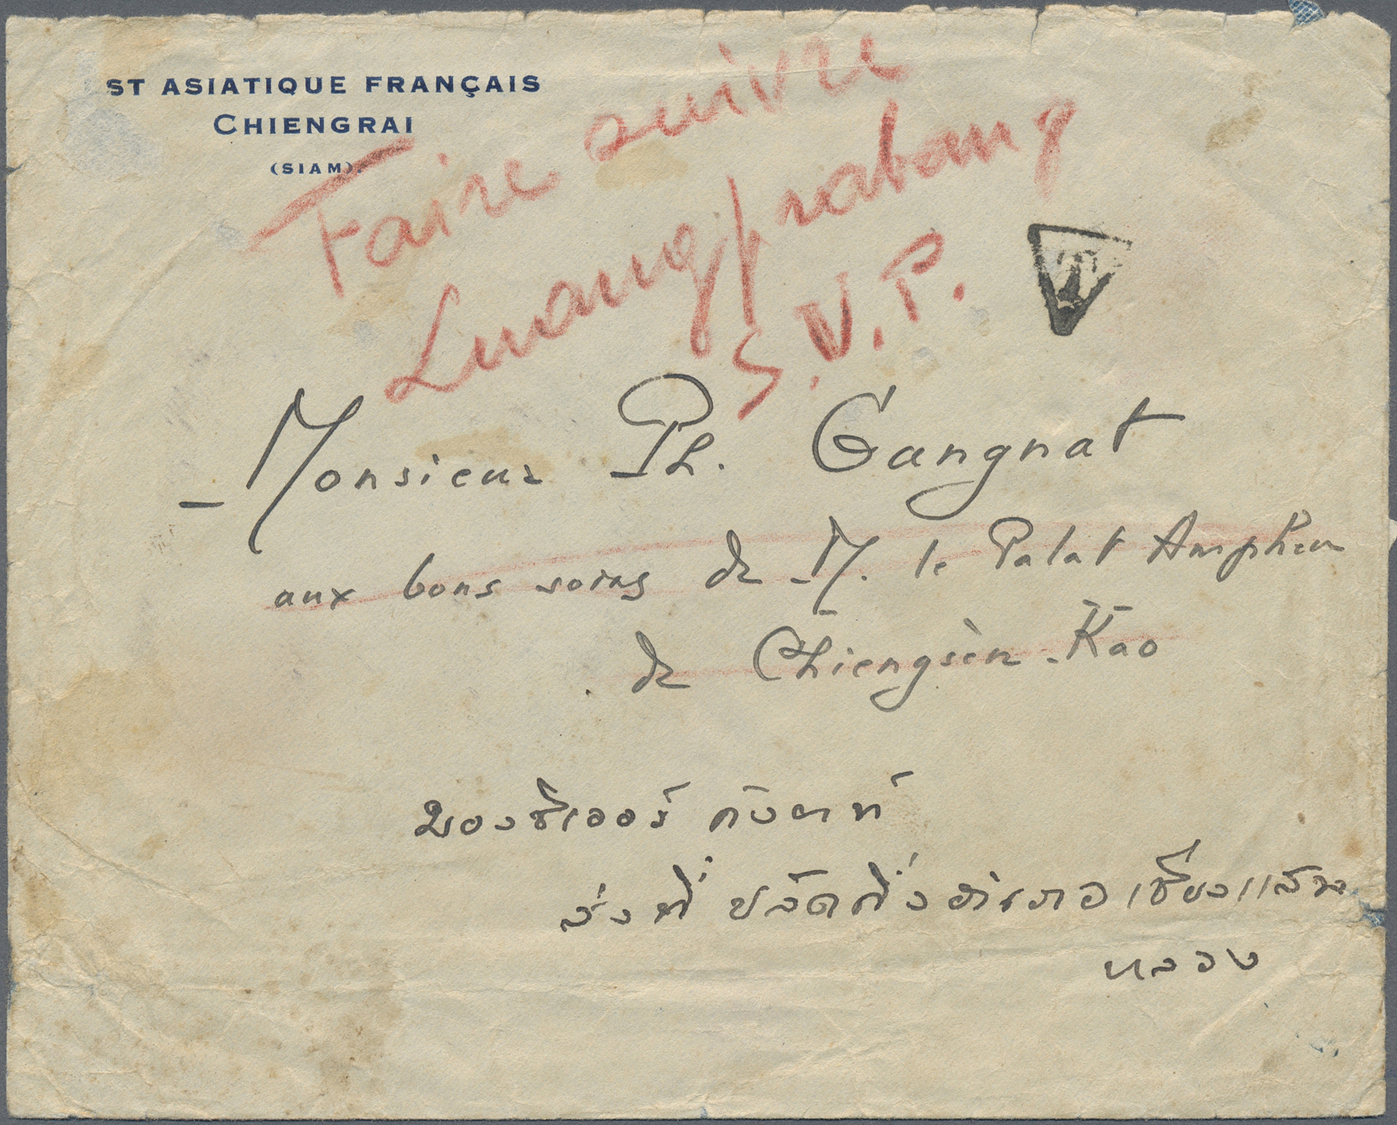 ST ASIATIQUE FRANÇAIS
CHIENGRAI
(SIAM)
Faire suivre
Luangprabang
S.V.P.
T
Monsieur Ph. Gangnat
aux bons soins de M. le Palat Ampheu
de Chiengsèn-Kao
มองซิเออร์
ส่งที่ ปลัดกิ่งอำเภอเชียงแสน
หลวง